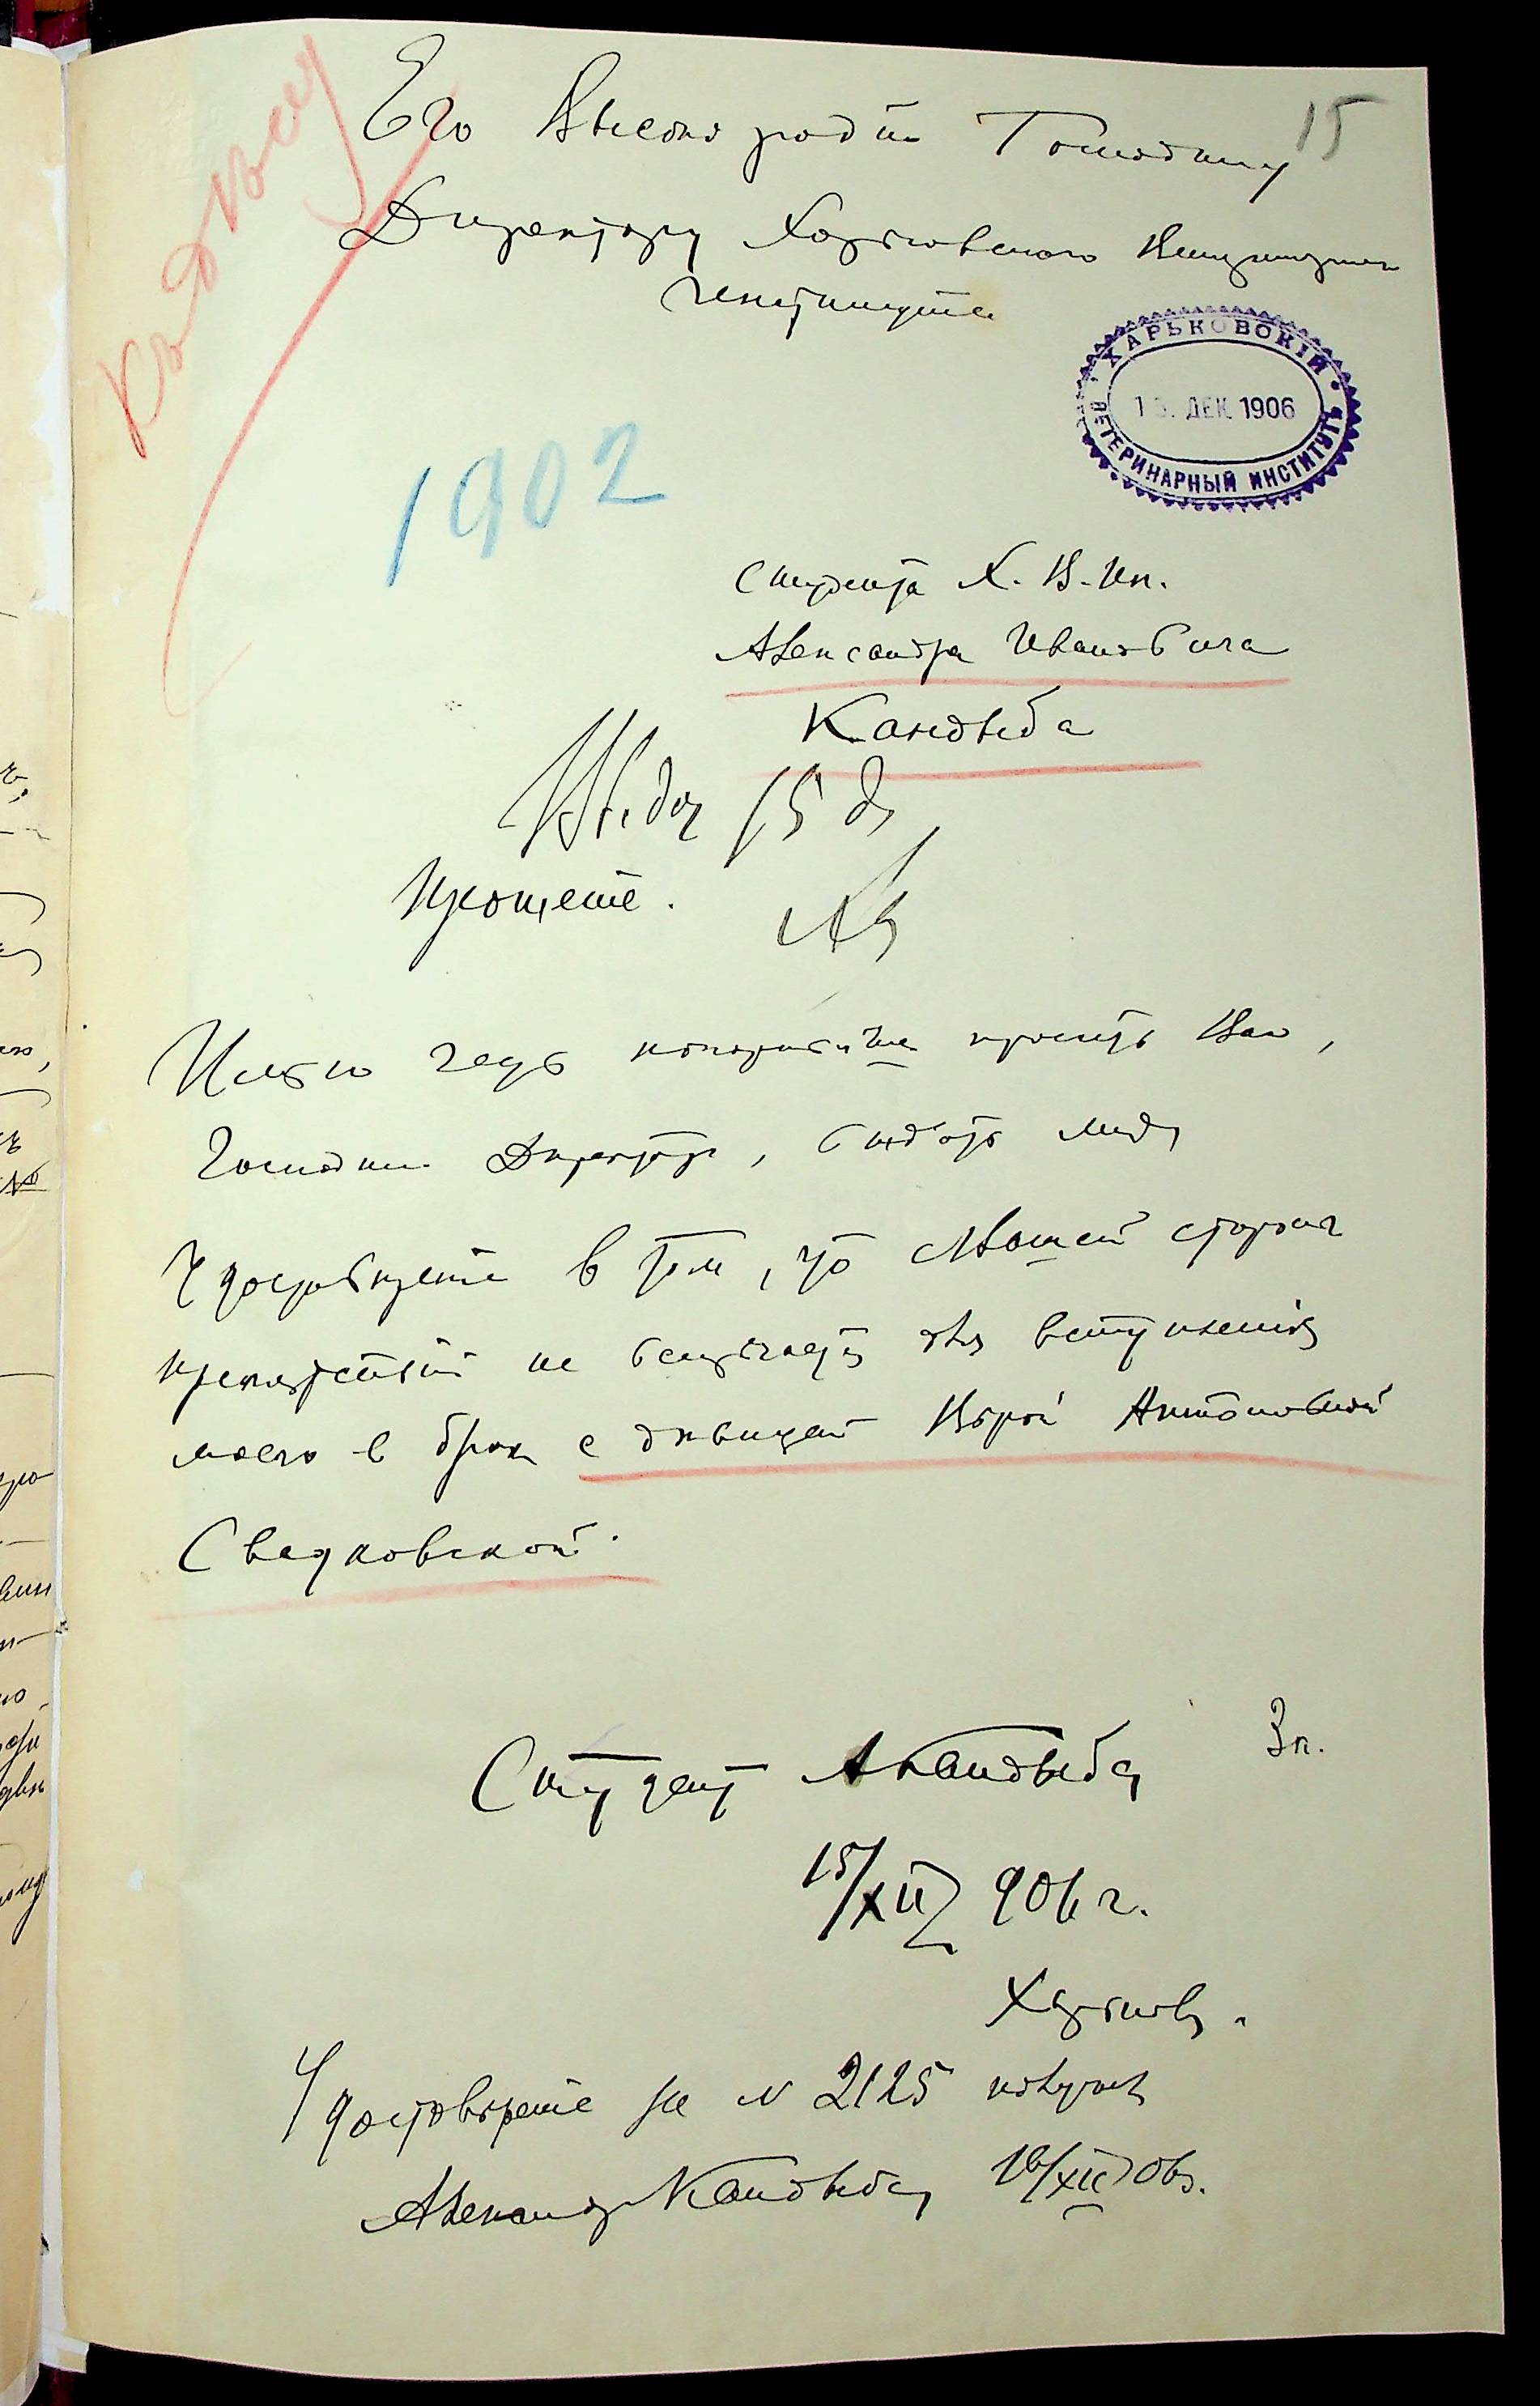 15
Къ дѣлу
Его Высокородію Господину
Директору Харьковского Ветеринарнаго
Института
ХАРЬКОВСКІЙ
ДЕК. 1906
ВЕТЕРИНАРНЫЙ ИНСТИТУТЪ
1902
Студента Х. В. Ин.
Александра Ивановича
Кандыба
Выдат 15 д
Прошеніе.
Имѣю честь покорнѣйше просить Вас,
Господин Директор, выдать мнѣ
Удостовѣреніе в том, что с Вашей стороны
препятствій не встрѣчается для вступленія
моего в брак с дѣвицей Вѣрой Антоновной
Свадковской.
Студент А Кандыба
3 к.
15/XII 906 г.
Харьков.
Удостовѣреніе за № 2125 получил
Александр Кандыба 16/XII 06 г.